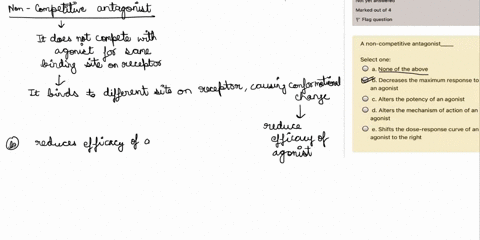 Non-Competitive antagonist
It does not compete with
agonist for same
binding site on receptor
It binds to different site on receptor, causing conformational
change
reduce
efficacy of
agonist
(b) reduces efficacy of a
Not yet answered
Marked out of 4
Flag question
A non-competitive antagonist____
Select one:
a. None of the above
b. Decreases the maximum response to
an agonist
c. Alters the potency of an agonist
d. Alters the mechanism of action of an
agonist
e. Shifts the dose-response curve of an
agonist to the right